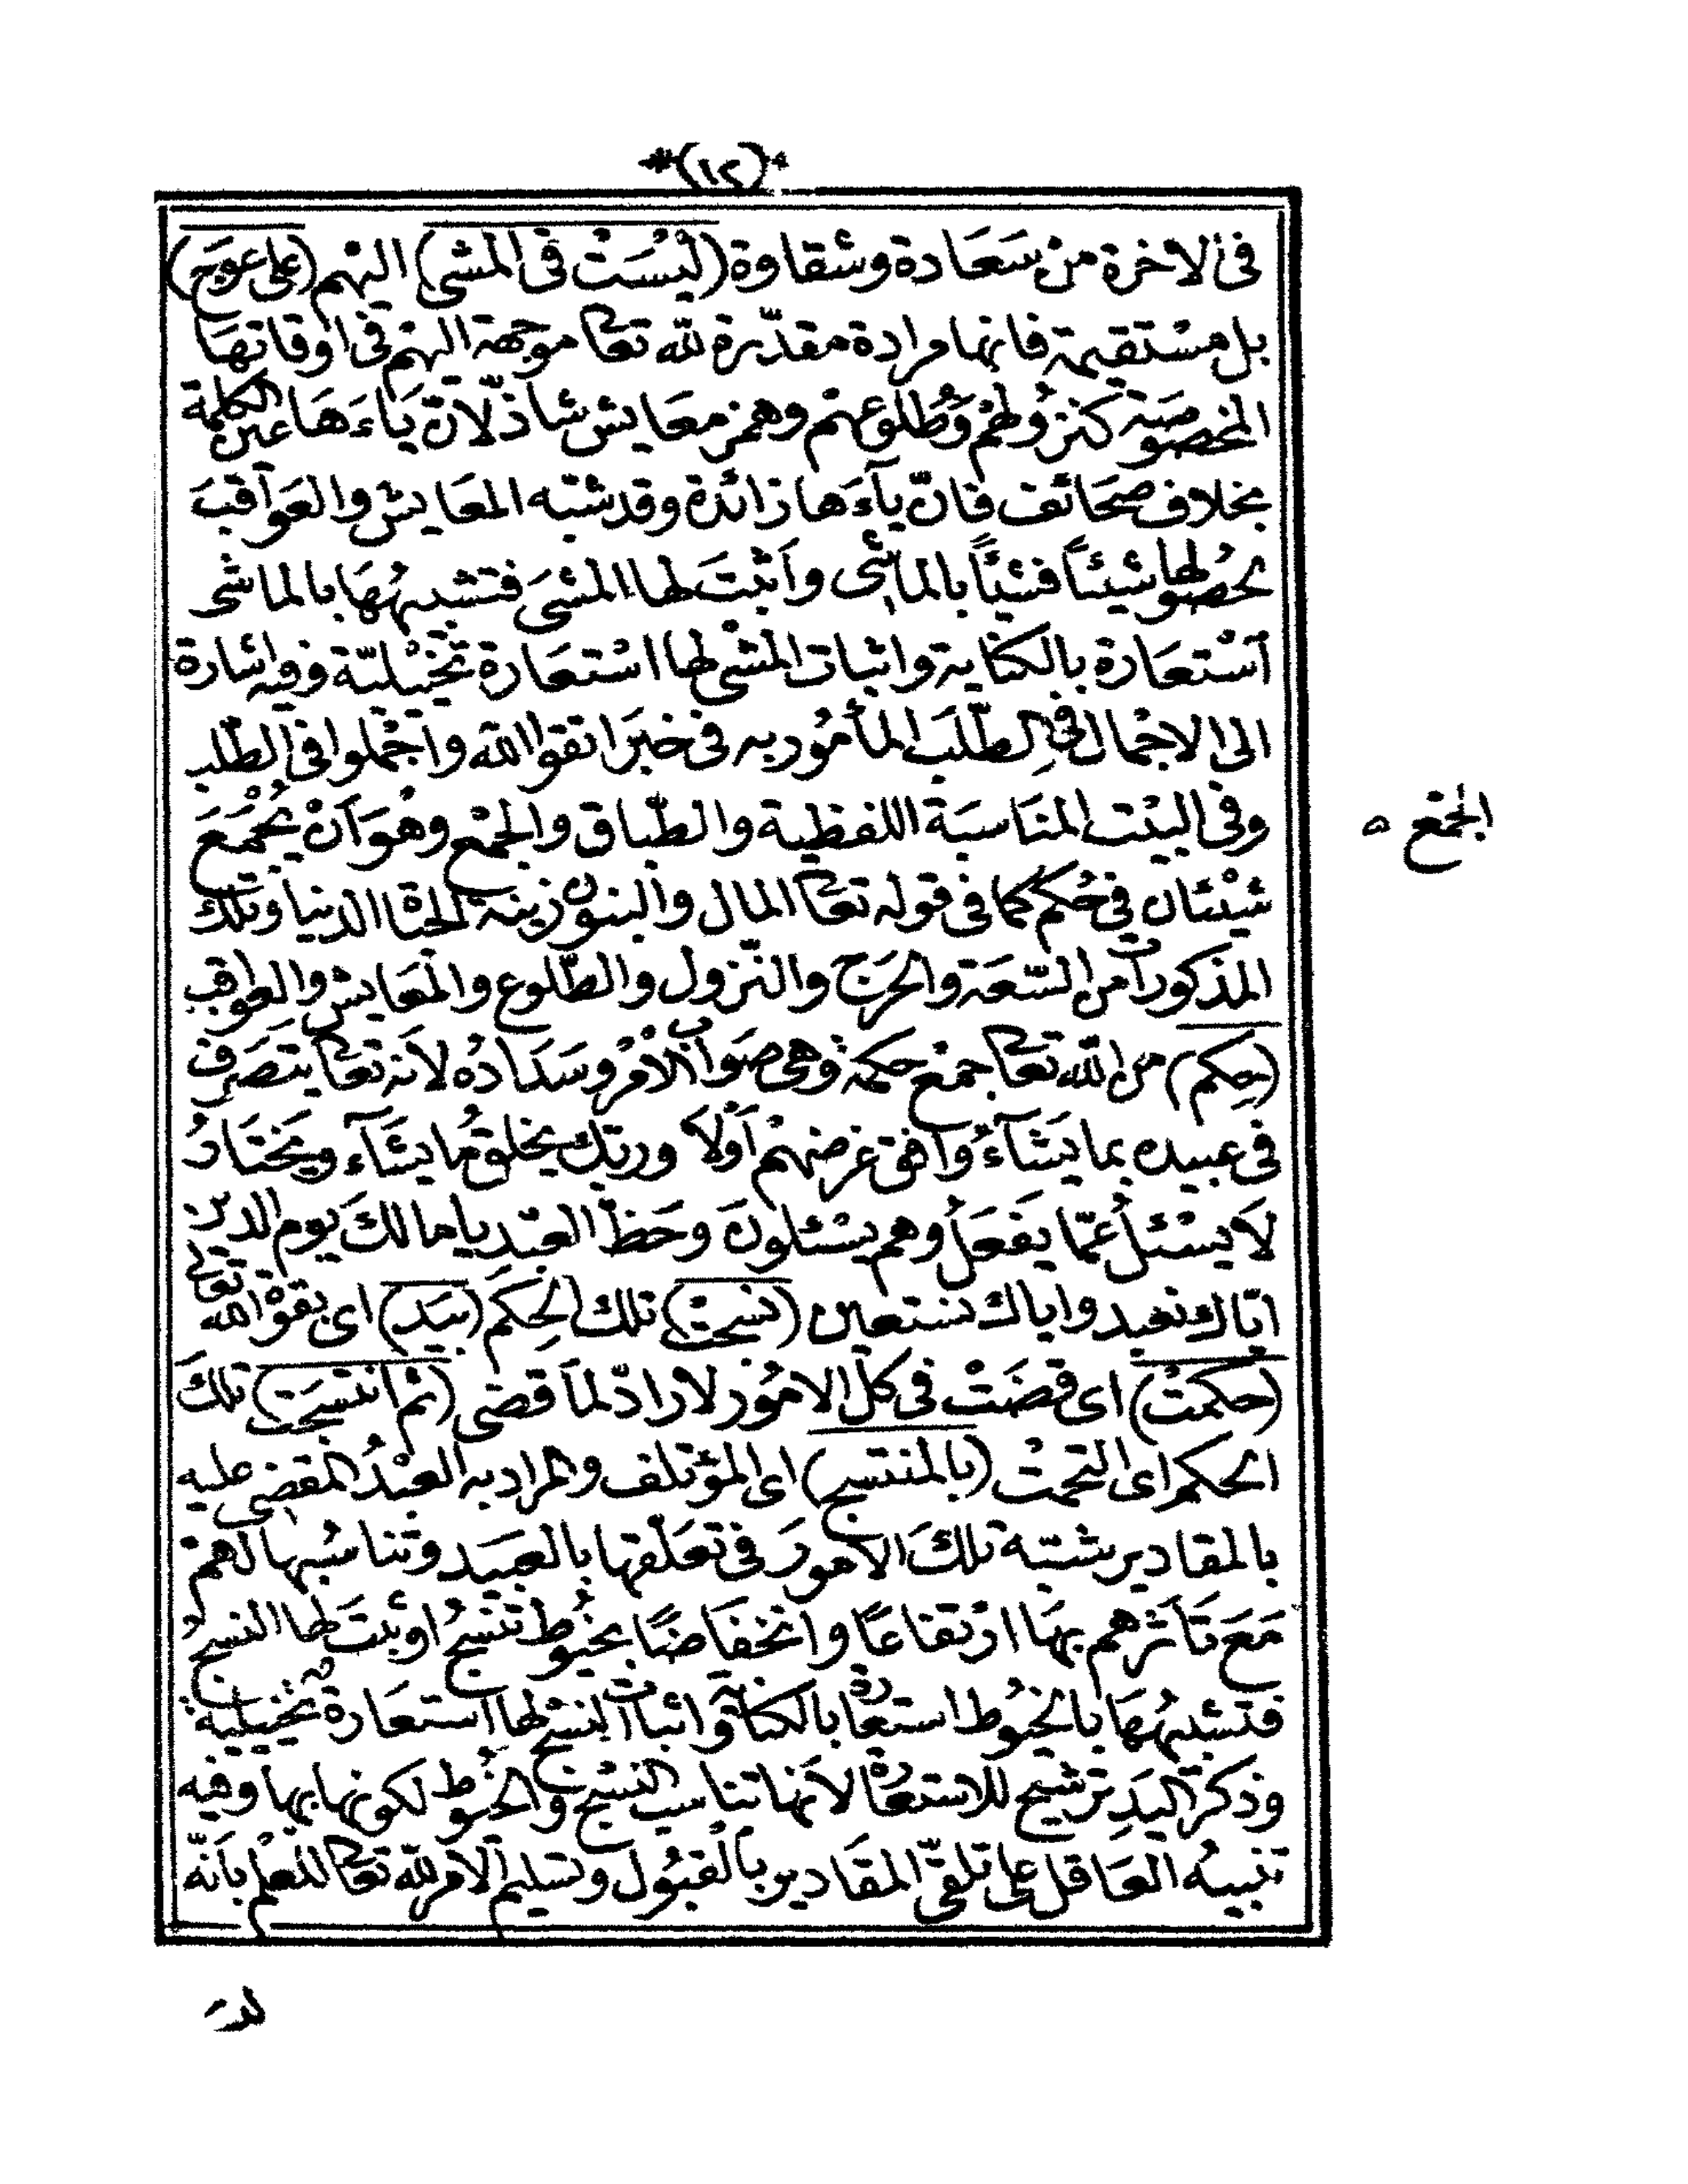 *(١٢)*
فى الاخرة من سَعَادة وشقاوة (ليْسَتْ فى المشى) اليهم (على عوَج)
بل مسْتقيمة فانها مرادة مقدّرة لله تعالى موجهة اليهم فى اوقاتها
المخصوصَة كنزُولهم وَطُلوعهم وهمز معَايش شاذ لّانّ يَاءَهَا عين الكلمة
بخلاف صحَائف فانّ يآءَها زائدة وقد شبّه المعَايش والعَواقبَ
بحصُولها شيئاً فشيئاً بالماشى واَثبتَ لها المشىَ فتشبيهُهَا بالماشى
اسْتعَارة بالكناية واثبات المشى لها اسْتعَارة تخييليّة وفيه اشارة
الى الاجْمال فى الطّلَب المأمُور به فى خبَر اتقوا الله واَجْملوا فى الطّلب
وفى البيْت المنَاسبَة اللفظية والطّباق والجمْع وهوَ اَنْ يُجْمَعَ
شيْئان فى حُكم كما فى قوله تعالى المال والبنون زينة الحيٰاة الدنيا وتلك
المذكورات من السّعَة والحَرَج والنّزول والطّلوع والمعَايش والعواقب
(حِكم) من الله تعالى جمْع حكمة وهى صَواب الامْر وسَدَادُه لانه تعالى يتصَرف
فى عبيده بما يَشَآءُ وافق غرضهمْ اَوْلا وربّك يخلق مُا يشَآء ويَختَارُ
لَا يسْئل عَمّا يفعَل وهم يسْئلونَ وحَظّ العبْد يا مالكَ يوم الدين
ايّاك نعْبد واياك نستعين (نسجَتْ) تلك الحِكم (بيَد) اى بقوّة الله تعالى
(حكمتْ) اى قضَتْ فى كلّ الامُور لا رادّ لماَ قضى (ثم انتسَجَت) تلكَ
الحكم اى التحمتْ (بالمنتسج) اى المؤتلف والمراد به العبْدُ المقضى عليه
بالمقادير شبّه تلكَ الامورَ فى تعَلّقها بالعبيَد وتناسُبها لهمْ
مَعَ تَأثرهم بهَا ارْتفاعًا وانخفَاضًا بخيُوط تنسجُ واثبتَ لها النسجُ
فتشبيهُهَا بالخيوُط استعَارة بالكناية واثبات النسج لها استعَارة تخييلية
وذكر اليَدِ ترشيح للاستعَارة لاَنها تناسب النسْج والخيُوط لكونها بها وفيه
تنبيهُ العَاقل على تلقّى المقَادير بالقبُول وتسليم الامر لله تعالى للعلْم باَنّه
الجمْع ٥